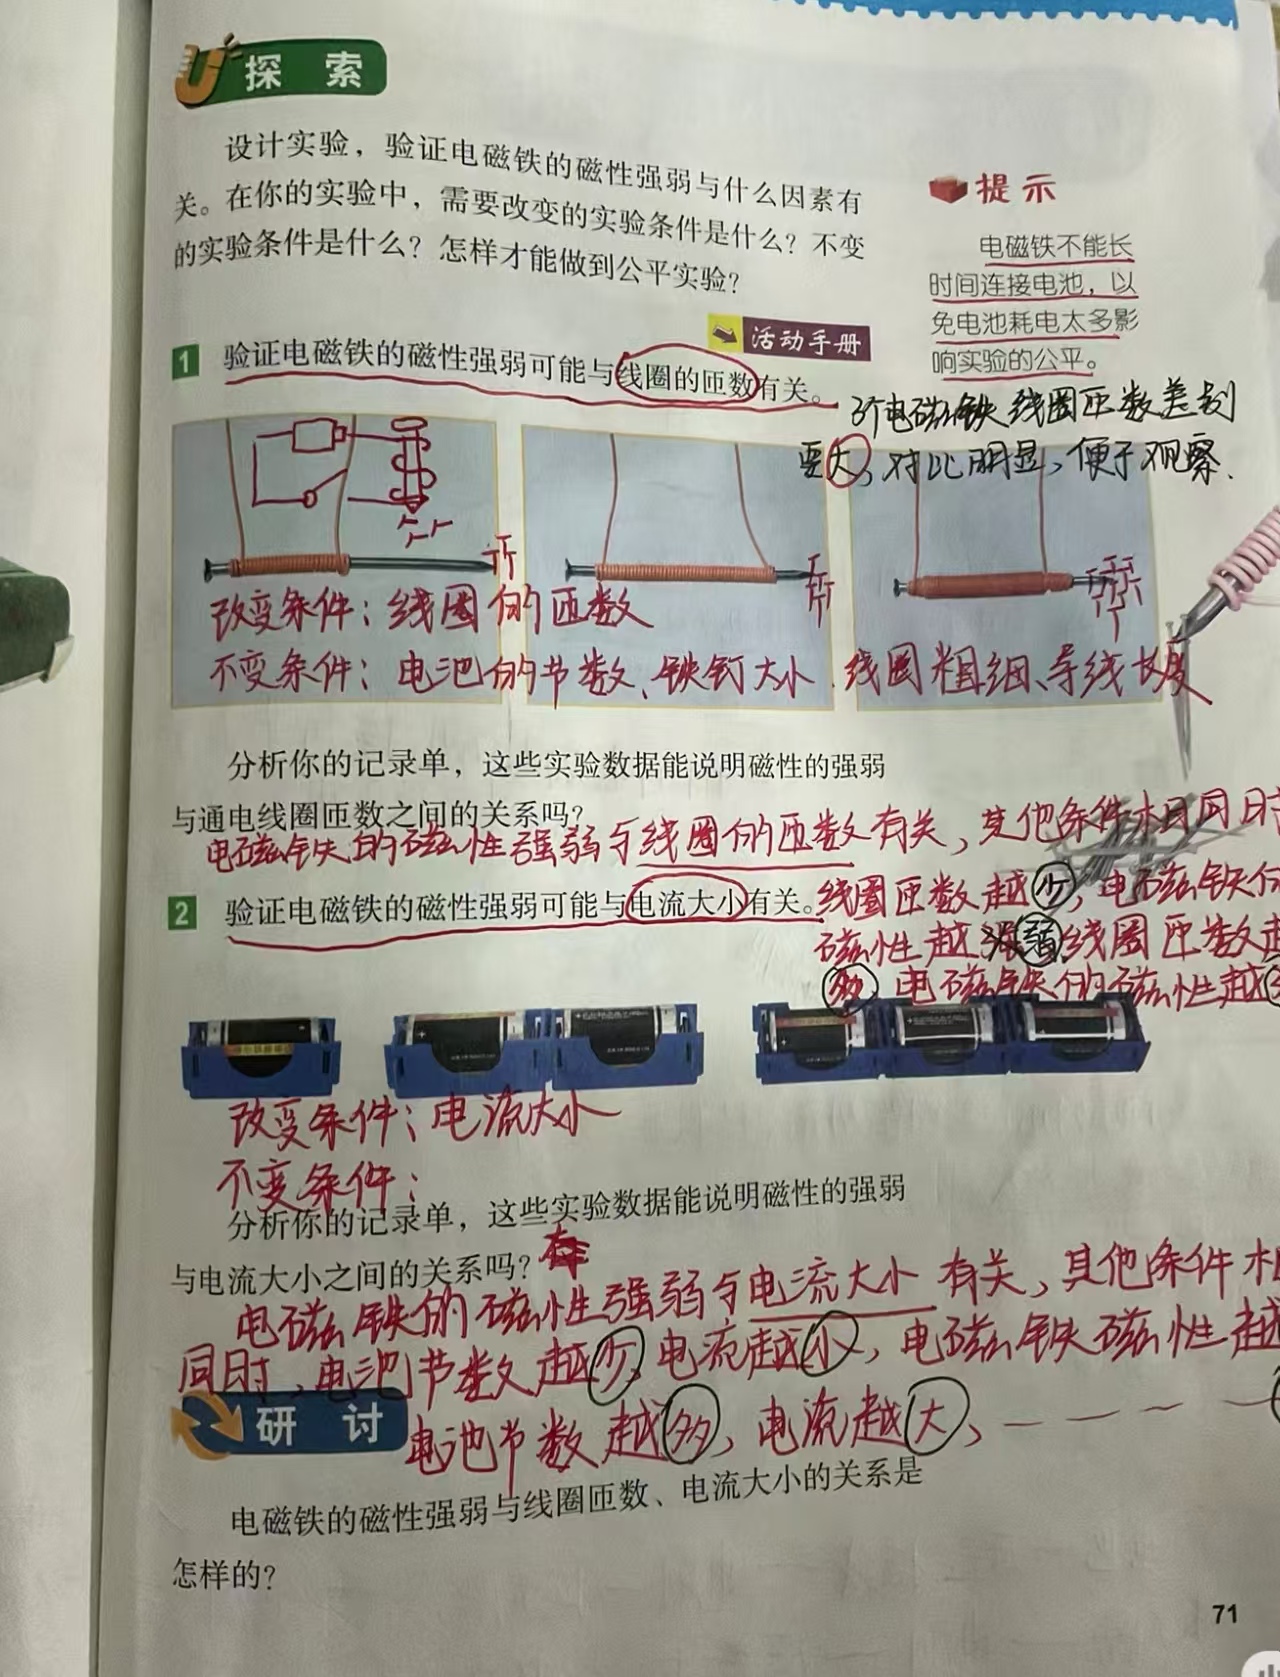 探 索
设计实验，验证电磁铁的磁性强弱与什么因素有
关。在你的实验中，需要改变的实验条件是什么？不变
的实验条件是什么？怎样才能做到公平实验？
提示
电磁铁不能长
时间连接电池，以
免电池耗电太多影
响实验的公平。
活动手册
1 验证电磁铁的磁性强弱可能与线圈的匝数有关。
电磁铁线圈匝数差别
要大，对比明显，便于观察.
改变条件：线圈的匝数
不变条件：电池的节数、铁钉大小、线圈粗细、导线长度
分析你的记录单，这些实验数据能说明磁性的强弱
与通电线圈匝数之间的关系吗？
电磁铁的磁性强弱与线圈的匝数有关，其他条件相同时
2 验证电磁铁的磁性强弱可能与电流大小有关。
线圈匝数越少，电磁铁的
磁性越弱，线圈匝数越
多，电磁铁的磁性越
改变条件：电流大小
不变条件：
分析你的记录单，这些实验数据能说明磁性的强弱
与电流大小之间的关系吗？
电磁铁的磁性强弱与电流大小有关，其他条件相
同时，电池节数越少，电流越小，电磁铁磁性越
电池节数越多，电流越大，
研 讨
电磁铁的磁性强弱与线圈匝数、电流大小的关系是
怎样的？
71